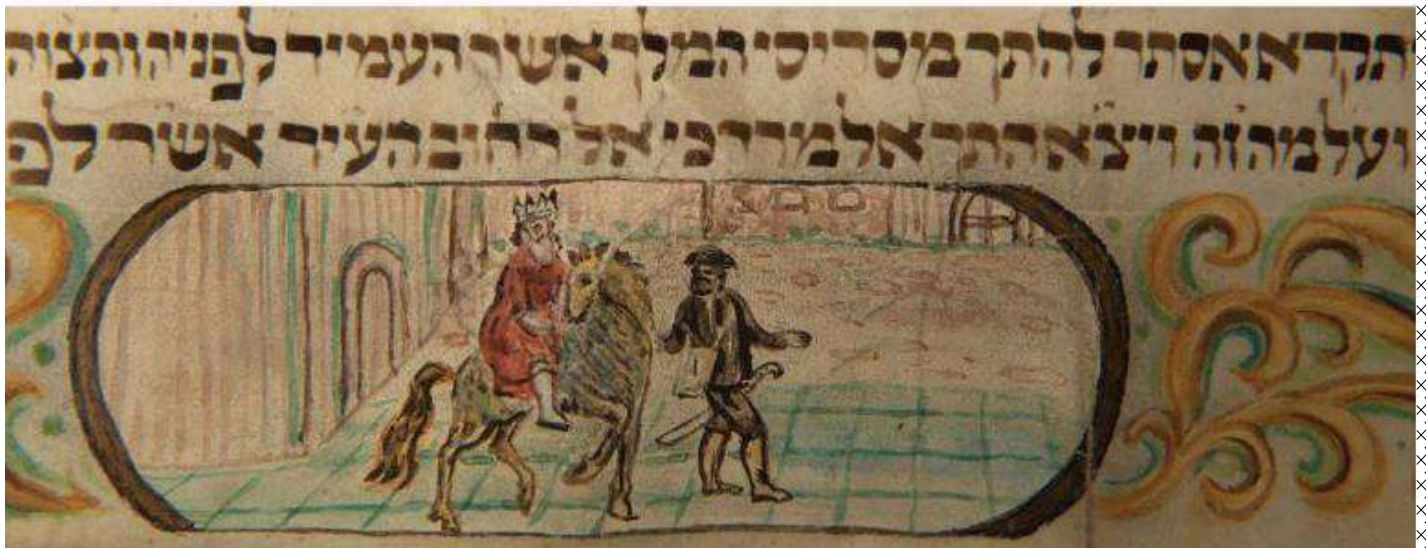 ותקרא אסתר להתך מסריסי המלך אשר העמיד לפניה ותצוה
ועל מה זה ויצא התך אל מרדכי אל רחוב העיר אשר לפ